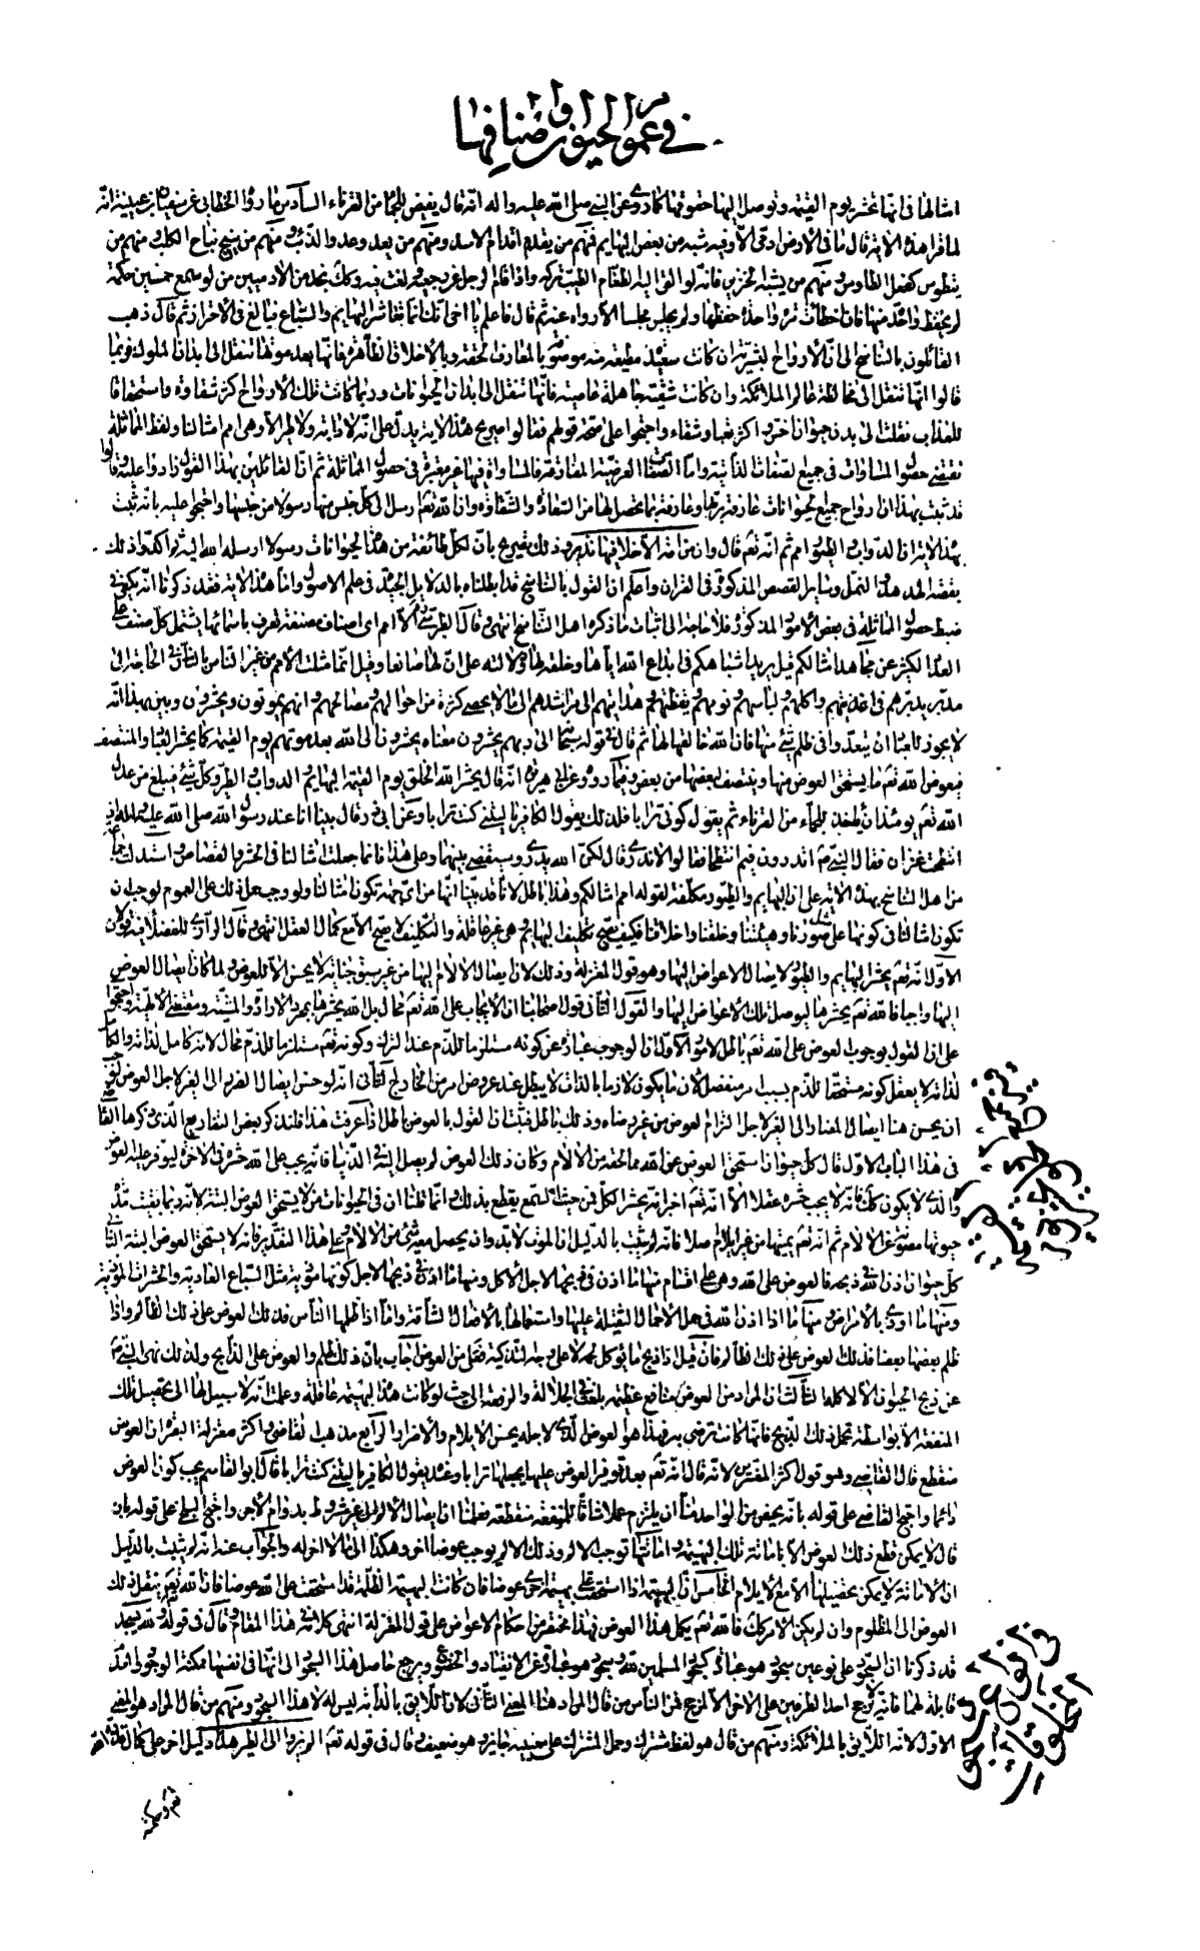 في عموم احوال الحيوان واصنافها
امثالها في انها تحشر يوم القيمة وتوصل اليها حقوقها كما روي عن النبي صلى الله عليه واله انه قال يقتص للجماء من القرناء السادس ما رواه الخطابي عن سفيان بن عيينة انه
لما قرا هذه الاية قال ما في الارض ادمي الا وفيه شبه من بعض البهايم فمنهم من يقدم اقدام الاسد ومنهم من يعدو عدو الذئب ومنهم من ينبح نباح الكلب ومنهم من
يتطوس كفعل الطاوس ومنهم من يشبه الخنزير فانه لو القي اليه الطعام الطيب تركه واذا قام الرجل عن رجيعه ولغت فيه وكذلك نجد من الادميين من لو سمع خمسين حكمة
لم يحفظ واحدة منها فان اخطات مرة واحدة حفظها ولم يجلس مجلسا الا رواه عنه ثم قال فاعلم يا اخي انك انما تعاشر البهايم والسباع فبالغ في الاحتراز ثم قال ذهب
القائلون بالتناسخ الى ان الارواح البشرية ان كانت سعيدة مطيعة لله موصوفة بالمعارف الحقة وبالاخلاق الطاهرة فانها بعد موتها تنقل الى ابدان الملوك وربما
قالوا انها تنقل الى مخالطة عالم الملائكة وان كانت شقية جاهلة عاصية فانها تنقل الى ابدان الحيوانات وربما كانت تلك الارواح اكثر شقاوة واستحقاقا
للعذاب نقلت الى بدن حيوان اخس واكثر تعبا وشقاء واحتجوا على صحة قولهم فقالوا صريح هذه الاية يدل على انه لا دابة ولا طير الا وهي امم امثالنا ولفظ المماثلة
يقتضي حصول المساوات في جميع الصفات الذاتية واما الصفات العرضية المفارقة فالمساواة فيها غير معتبرة في حصول المماثلة ثم ان القائلين بهذا القول زادوا عليه وقالوا
قد ثبت بهذا ان ارواح جميع الحيوانات عارفة بربها وعارفة بما تحصل لها من السعادة والشقاوة وان الله تعالى ارسل الى كل جنس منها رسولا من جنسها واحتجوا عليه بانه ثبت
بهذه الاية ان الدواب والطيور امم ثم انه تعالى قال وان من امة الا خلا فيها نذير وذلك تصريح بان لكل طائفة من هذه الحيوانات رسولا ارسله الله اليه ثم اكدوا ذلك
بقصة الهدهد والنمل وساير القصص المذكورة في القران واعلم ان القول بالتناسخ قد ابطلناه بالدلايل الجيدة في علم الاصول واما هذه الاية فقد ذكرنا انه يكفي في
ضبط حصول المماثلة في بعض الامور المذكورة فلا حاجة الى اثبات ما ذكره اهل التناسخ انتهى وقال الطبرسي الا امم اي اصناف مصنفة تعرف باسمائها يشتمل كل صنف على
العدد الكثير عن مجاهد امثالكم قيل يريد اشباهكم في ابداع الله اياها وخلقه لها ودلالته على ان لها صانعا وقيل انما مثلت الامم من غير الناس بالناس في الحاجة الى
مدبر يدبرهم في اغذيتهم واكلهم ولباسهم ونومهم ويقظتهم وهدايتهم الى مراشدهم الى ما لا يحصى كثرة من احوالهم ومصالحهم وانهم يموتون ويحشرون وبين بهذا انه
لا يجوز للعباد ان يتعدوا في ظلم شئ منها فان الله خالقها المنتصف لها ثم قال في قوله سبحانه الى ربهم يحشرون معناه يحشرون الى الله بعد موتهم يوم القيمة كما يحشر العباد
فيعوض الله تعالى ما يستحق العوض منها وينتصف لبعضها من بعض وفيما رووه عن ابي هريرة انه قال يحشر الله الخلق يوم القيمة البهايم والدواب والطير وكل شئ فيبلغ من عدل
الله تعالى يومئذ ان ياخذ للجماء من القرناء ثم يقول كوني ترابا فلذلك يقول الكافر يا ليتني كنت ترابا وعن ابي ذر قال بينا انا عند رسول الله صلى الله عليه واله اذ
انتطحت عنزان فقال النبي اتدرون فيم انتطحا فقالوا لا ندري قال لكن الله يدري وسيقضي بينهما وعلى هذا فانما جعلت امثالنا في الحشر والقصاص واستدلت جماعة
من اهل التناسخ بهذه الاية على ان البهايم والطيور مكلفة لقوله امم امثالكم وهذا باطل لانا قد بينا انها من اي جهة تكون امثالنا ولو وجب حمل ذلك على العموم لوجب ان
تكون امثالنا في كونها على مثل صورنا وهيئتنا وخلقتنا واخلاقنا فكيف يصح تكليف البهايم وهي غير عاقلة والتكليف لا يصح الا مع كمال العقل انتهى وقال الرازي للفضلاء فيه قولان
الاول انه تعالى يحشر البهايم والطيور لايصال الاعواض اليها وهو قول المعتزلة وذلك لان ايصال الالام اليها من غير سبق جناية لا يحسن الا للعوض ولما كان ايصال العوض
اليها واجبا فالله تعالى يحشرها ليوصل تلك الاعواض اليها والقول الثاني قول اصحابنا ان الايجاب على الله تعالى محال بل الله يحشرها بمجرد الارادة والمشية ومقتضى الالهية واحتجوا
على ان القول بوجوب العوض على الله تعالى باطل لامور الاول ان الوجوب عبارة عن كونه مستلزما للذم عند الترك وكونه تعالى مستلزما للذم محال لانه كامل لذاته والكامل
لذاته لا يعقل كونه مستحقا للذم بسبب امر منفصل لان ما يكون لازما بالذات لا يبطل عند عروض امر من الخارج الثاني انه لو حسن ايصال الضرر الى الغير لاجل العوض لوجب
ان يحسن منا ايصال المضار الى الغير لاجل التزام العوض من غير رضاه وذلك باطل فثبت ان القول بالعوض باطل اذا عرفت هذا فلنذكر بعض التفاريع الذي ذكرها القاضي
في هذا الباب الاول قال كل حيوان استحق العوض عن الله مما لحقه من الالام وكان ذلك العوض لم يصل اليه في الدنيا فانه يجب على الله حشره في الاخرة ليوفر عليه العوض
والذي لا يكون كذلك فانه لا يجب حشره عقلا الا انه تعالى اخبر انه يحشر الكل فمن حيث السمع يقطع بذلك وانما قلنا ان في الحيوانات من لا يستحق العوض البتة لانه ربما بقيت مدة
حيوتها مصونة عن الالام ثم انه تعالى يميتها من غير ايلام اصلا فانه لم يثبت بالدليل ان الموت لا بد وان يحصل معه شئ من الالام وعلى هذا التقدير فانه لا يستحق العوض البتة الثاني
كل حيوان اذن الله في ذبحه فالعوض على الله وهي على اقسام منها ما اذن في ذبحها لاجل الاكل ومنها ما اذن في ذبحها لاجل كونها موذية مثل السباع العادية والحشرات الموذية
ومنها ما اوذي بالامراض ومنها ما اذا اذن الله في حمل الاحمال الثقيلة عليها واستعمالها بالافعال الشاقة واما اذا ظلمها الناس فذلك العوض على ذلك الظالم واذا
ظلم بعضها بعضا فذلك العوض على ذلك الظالم فان قيل اذا ذبح ما يؤكل لحمه لا على وجه التذكية فعلى من العوض اجاب بان ذلك ظلم والعوض على الذابح ولذلك نهى النبي
عن ذبح الحيوان الا لاكله الثالث ان المراد من العوض منافع عظيمة بلغت في الجلالة والرفعة الى حيث لو كانت هذه البهيمة عاقلة وعلمت انه لا سبيل لها الى تحصيل تلك
المنفعة الا بواسطة تحمل ذلك الذبح فانها كانت ترضى به فهذا هو العوض الذي لاجله يحسن الايلام والاضرار الرابع مذهب القاضي واكثر معتزلة البصرة ان العوض
منقطع قال القاضي وهو قول اكثر المفسرين لانه قال انه تعالى بعد توفير العوض عليها يجعلها ترابا وعنده يقول الكافر يا ليتني كنت ترابا قال ابو القاسم يجب كون العوض
دائما واحتج القاضي على قوله بانه يحسن من الواحد منا ان يلتزم عملا شاقا لمنفعة منقطعة فعلمنا ان ايصال الالم الى الغير غير مشروط بدوام الاجر واحتج البلخي على قوله بان
قال لا يمكن قطع ذلك العوض الا باماتة تلك البهيمة واماتتها توجب الالم وذلك الالم يوجب عوضا اخر وهكذا الى ما لا اخر له والجواب عنه انه لم يثبت بالدليل
ان الاماتة لا يمكن تحصيلها الا مع الايلام الخامس ان البهيمة اذا استحقت على بهيمة اخرى عوضا فان كانت البهيمة الظالمة قد استحقت على الله عوضا فان الله تعالى ينقل ذلك
العوض الى المظلوم وان لم يكن الامر كذلك فالله تعالى يكمل هذا العوض فهذا مختصر من احكام الاعواض على قول المعتزلة انتهى كلامه في هذا المقام وقال في قوله تعالى ولله يسجد
قد ذكرنا ان السجود على نوعين سجود هو عبادة كسجود المسلمين لله وسجود هو عبارة عن الانقياد والخضوع ويرجع حاصل هذا السجود الى انها في نفسها ممكنة الوجود والعدم
قابلة لهما فانه لا يرجح احد الطرفين على الاخر الا لمرجح فمن الناس من قال المراد هنا المعنى الثاني لان اللائق بالدابة ليس له الا هذا السجود ومنهم من قال المراد هو المعنى
الاول لانه اللايق بالملائكة ومنهم من قال هو لفظ مشترك وحمل المشترك على معنييه جايز وهو ضعيف وقال في قوله تعالى الم يروا الى الطير هذا دليل اخر على كمال قدرة الله